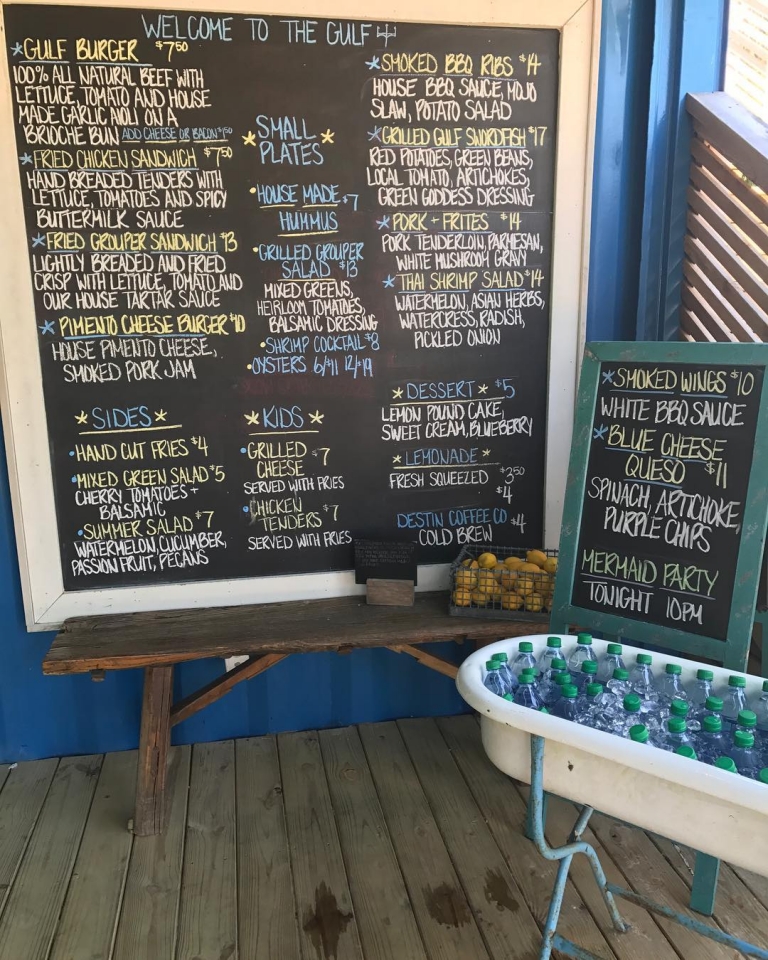 WELCOME TO THE GULF
*GULF BURGER $7⁵⁰
100% ALL NATURAL BEEF WITH
LETTUCE, TOMATO AND HOUSE
MADE GARLIC AIOLI ON A
BRIOCHE BUN ADD CHEESE OR BACON $1⁵⁰
*FRIED CHICKEN SANDWICH $7⁵⁰
HAND BREADED TENDERS WITH
LETTUCE, TOMATOES AND SPICY
BUTTERMILK SAUCE
*FRIED GROUPER SANDWICH $13
LIGHTLY BREADED AND FRIED
CRISP WITH LETTUCE, TOMATO AND
OUR HOUSE TARTAR SAUCE
*PIMENTO CHEESE BURGER $10
HOUSE PIMENTO CHEESE,
SMOKED PORK JAM
*SIDES*
•HAND CUT FRIES $4
•MIXED GREEN SALAD $5
CHERRY TOMATOES +
BALSAMIC
•SUMMER SALAD $7
WATERMELON, CUCUMBER,
PASSION FRUIT, PECANS
*SMALL
PLATES*
•HOUSE MADE $7
HUMMUS
•GRILLED GROUPER
SALAD $13
MIXED GREENS,
HEIRLOOM TOMATOES,
BALSAMIC DRESSING
•SHRIMP COCKTAIL $8
•OYSTERS 6/$11 12/$19
*KIDS*
•GRILLED
CHEESE $7
SERVED WITH FRIES
•CHICKEN
TENDERS $7
SERVED WITH FRIES
*SMOKED BBQ RIBS $14
HOUSE BBQ SAUCE, MOJO
SLAW, POTATO SALAD
*GRILLED GULF SWORDFISH $17
RED POTATOES, GREEN BEANS,
LOCAL TOMATO, ARTICHOKES,
GREEN GODDESS DRESSING
*PORK + FRITES $14
PORK TENDERLOIN, PARMESAN,
WHITE MUSHROOM GRAVY
*THAI SHRIMP SALAD $14
WATERMELON, ASIAN HERBS,
WATERCRESS, RADISH,
PICKLED ONION
*DESSERT* $5
LEMON POUND CAKE,
SWEET CREAM, BLUEBERRY
*LEMONADE*
FRESH SQUEEZED $3⁵⁰
$4
DESTIN COFFEE CO $4
COLD BREW
*SMOKED WINGS $10
WHITE BBQ SAUCE
*BLUE CHEESE
QUESO $11
SPINACH, ARTICHOKE,
PURPLE CHIPS
MERMAID PARTY
TONIGHT 10PM